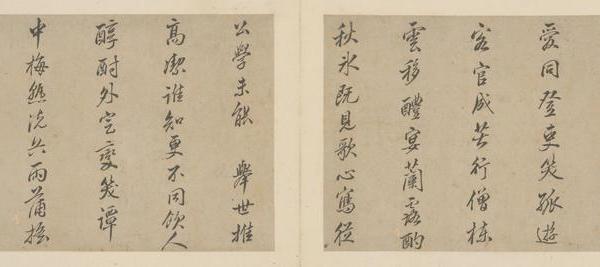 愛同登吏笑孤遊
客官成苦行僧棟
雲移醴宴蘭露酌
秋氷既見歌心寫從
公學未能 舉世推
高潔誰知更不同飲人
醇酎外定變笑譚
中梅熟洗兵雨蒲搖